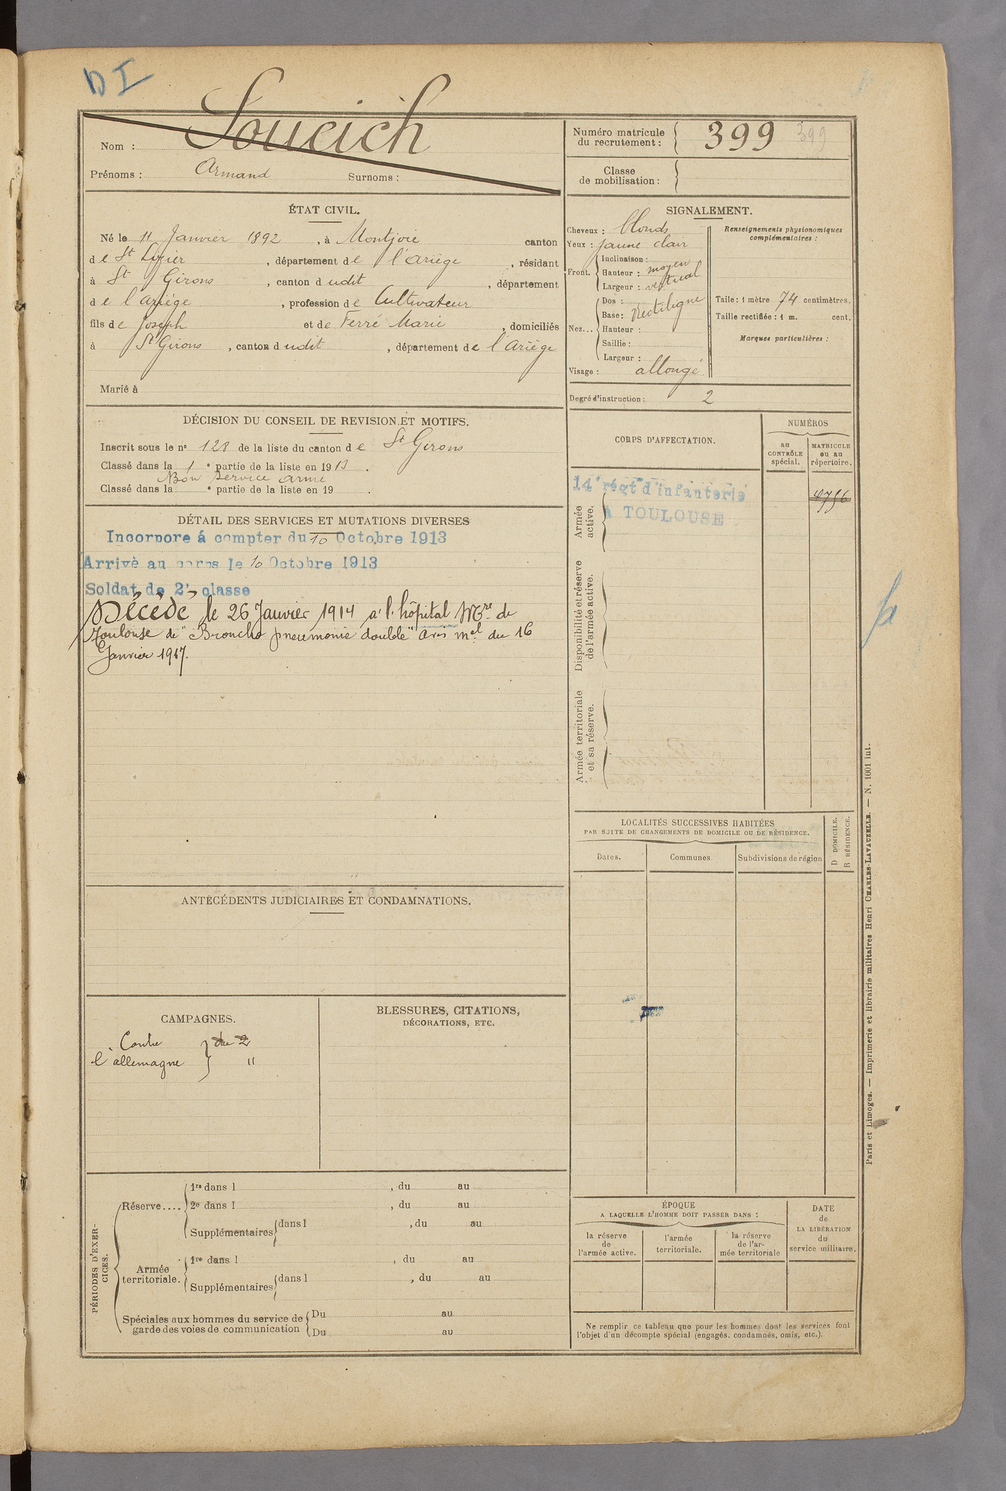 DI
Nom : Soueich
Prénoms : Armand Surnoms :
Numéro matricule du recrutement : 399 399
Classe de mobilisation :
ÉTAT CIVIL.
Né le 11 Janvier 1892, à Montjoie canton
de St Lizier, département de l'Ariège, résidant
à St Girons, canton dudit, département
de l'Ariège, profession de Cultivateur
fils de Joseph et de Ferré Marie, domiciliés
à St Girons, canton dudit, département de l'Ariège
Marié à
SIGNALEMENT.
Cheveux : blonds
Yeux : jaune clair
Front. Inclinaison :
Hauteur : moyen
Largeur : vertical
Nez... Dos :
Base : Rectiligne
Hauteur :
Saillie :
Largeur :
Visage : allongé
Renseignements physionomiques complémentaires :
Taille : 1 mètre 74 centimètres.
Taille rectifiée : 1 m. cent.
Marques particulières :
Degré d'instruction : 2
DÉCISION DU CONSEIL DE REVISION ET MOTIFS.
Inscrit sous le n° 128 de la liste du canton de St Girons
Classé dans la 1e partie de la liste en 1913.
Bon service armé
Classé dans la e partie de la liste en 19 .
DÉTAIL DES SERVICES ET MUTATIONS DIVERSES
Incorporé à compter du 10 Octobre 1913
Arrivé au corps le 10 Octobre 1913
Soldat de 2e classe
Décédé le 26 Janvier 1914 à l'hôpital Mre de
Toulouse de "Broncho pneumonie double" avis mel du 16
Janvier 1917.
CORPS D'AFFECTATION.
NUMÉROS
AU CONTRÔLE spécial.
MATRICULE ou au répertoire.
Armée active.
14e régt d'infanterie
À TOULOUSE
Disponibilité et réserve de l'armée active.
Armée territoriale et sa réserve.
LOCALITÉS SUCCESSIVES HABITÉES
PAR SUITE DE CHANGEMENTS DE DOMICILE OU DE RÉSIDENCE.
Dates. Communes. Subdivisions de région
D DOMICILE.
R RÉSIDENCE.
ANTÉCÉDENTS JUDICIAIRES ET CONDAMNATIONS.
CAMPAGNES.
Contre
l'allemagne
du 2
"
BLESSURES, CITATIONS,
DÉCORATIONS, ETC.
PÉRIODES D'EXERCICES.
Réserve....
1re dans l , du au
2e dans l , du au
Supplémentaires dans l , du au
Armée territoriale.
1re dans l , du au
Supplémentaires dans l , du au
Spéciales aux hommes du service de garde des voies de communication
Du au
Du au
ÉPOQUE
A LAQUELLE L'HOMME DOIT PASSER DANS :
la réserve de l'armée active.
l'armée territoriale.
la réserve de l'armée territoriale
DATE
de
LA LIBÉRATION
du
service militaire.
Ne remplir ce tableau que pour les hommes dont les services font
l'objet d'un décompte spécial (engagés, condamnés, omis, etc.).
Paris et Limoges. — Imprimerie et librairie militaires Henri CHARLES-LAVAUZELLE. — N. 1001 int.